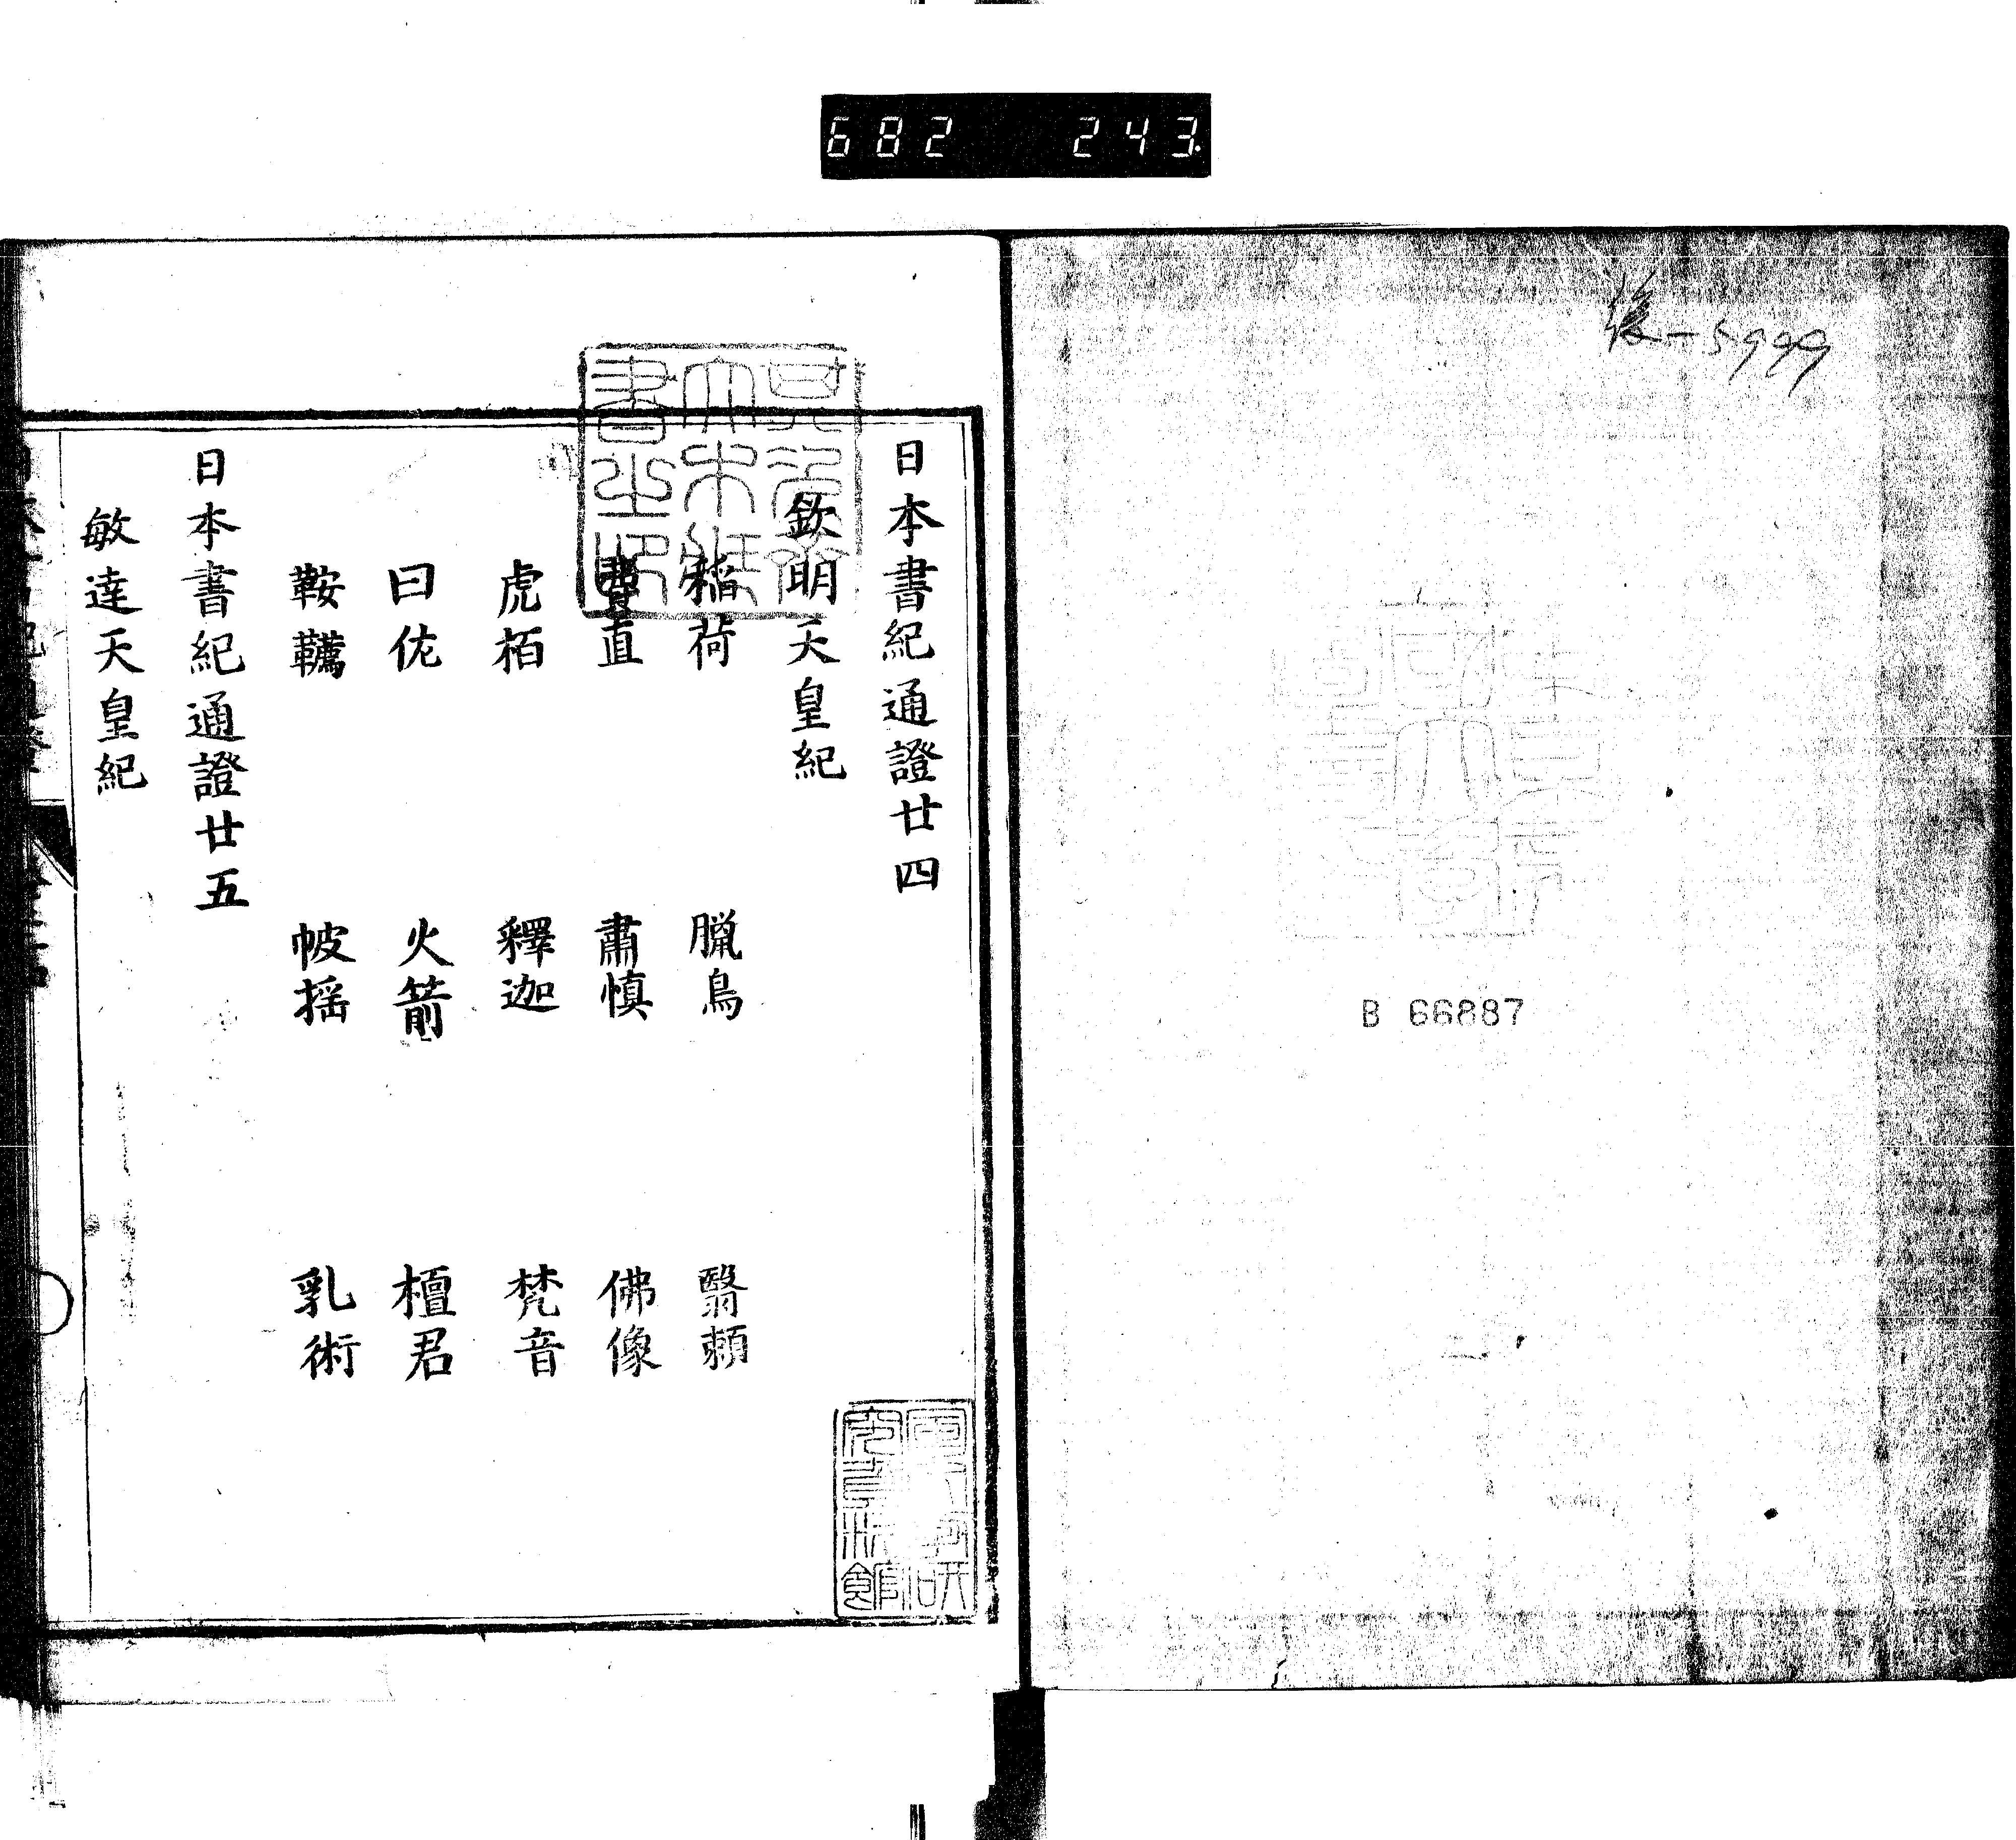 682 243
後-5999
B 66887
日本書紀通證廿四
欽明天皇紀
稲荷 臘鳥 翳頼
費直 肅慎 佛像
虎栢 釋迦 梵音
曰佐 火箭 檀君
鞍韉 帔揺 乳術
日本書紀通證廿五
敏達天皇紀